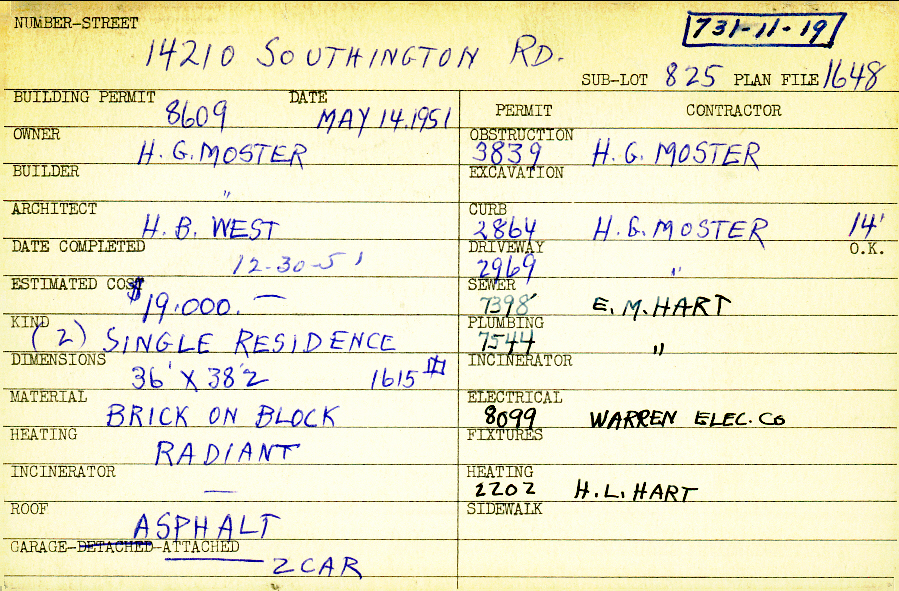 NUMBER-STREET
731-11-19
14210 SOUTHINGTON RD.
SUB-LOT 825 PLAN FILE 1648
BUILDING PERMIT DATE
8609 MAY 14.1951
PERMIT CONTRACTOR
OWNER
H. G. MOSTER
OBSTRUCTION
3839 H. G. MOSTER
BUILDER
"
EXCAVATION
ARCHITECT
H. B. WEST
CURB
2864 H. G. MOSTER 14'
DATE COMPLETED
12-30-51
DRIVEWAY O.K.
2969 "
ESTIMATED COST
$19,000. —
SEWER
7398 E. M. HART
KIND
(2) SINGLE RESIDENCE
PLUMBING
7544 "
DIMENSIONS
36' X 38'2 1615 #
INCINERATOR
MATERIAL
BRICK ON BLOCK
ELECTRICAL
8099 WARREN ELEC. CO
HEATING
RADIANT
FIXTURES
INCINERATOR
—
HEATING
2202 H. L. HART
ROOF
ASPHALT
SIDEWALK
GARAGE-DETACHED-ATTACHED
2 CAR